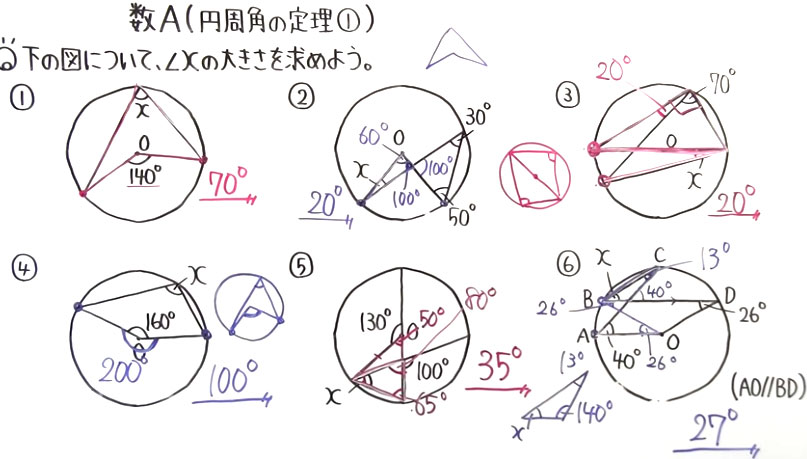 数A(円周角の定理①)
Q 下の図について、∠xの大きさを求めよう。
①
x
O
140°
70°
②
60°
O
30°
x
100°
100°
50°
20°
③
20°
70°
O
x
20°
④
x
160°
O
200°
100°
⑤
130°
O
50°
80°
100°
x
65°
35°
⑥
x
C
13°
B
40°
D
26°
26°
A
40°
26°
O
13°
140°
x
(AO//BD)
27°